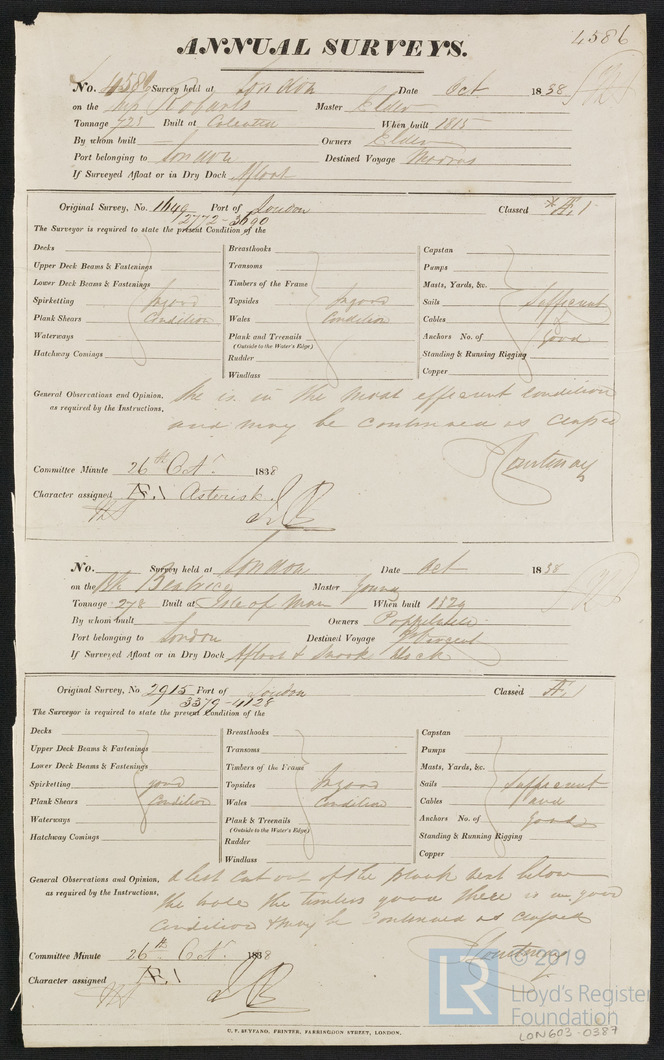 4586
ANNUAL SURVEYS.
No. 4586 Survey held at London Date Oct 1838
on the Ship Roberts Master Elder
Tonnage 723 Built at Calcutta When built 1815
By whom built Owners Elder
Port belonging to London Destined Voyage Madras
If Surveyed Afloat or in Dry Dock Afloat
Original Survey, No. 1649 Port of London Classed *Æ.1
2772-3690
The Surveyor is required to state the present Condition of the
Decks Breasthooks Capstan
Upper Deck Beams & Fastenings Transoms Pumps
Lower Deck Beams & Fastenings Timbers of the Frame Masts, Yards, &c.
Spirketting In good Topsides In good Sails Sufficient
Plank Shears Condition Wales Condition Cables &
Waterways Plank and Treenails Anchors No. of good
(Outside to the Water's Edge)
Hatchway Comings Rudder Standing & Running Rigging
Windlass Copper
General Observations and Opinion, She is in the most efficient condition
as required by the Instructions, and may be continued as classed
Courtenay
Committee Minute 26th Oct. 1838
Character assigned Æ.1 Asterisk
No. Survey held at London Date Oct 1838
on the Bk Beatrice Master Young
Tonnage 278 Built at Isle of Man When built 1829
By whom built Owners
Port belonging to London Destined Voyage St Vincent
If Surveyed Afloat or in Dry Dock Afloat & Dock
Original Survey, No 2915 Port of London Classed Æ.1
3379-4128
The Surveyor is required to state the present Condition of the
Decks Breasthooks Capstan
Upper Deck Beams & Fastenings Transoms Pumps
Lower Deck Beams & Fastenings Timbers of the Frame Masts, Yards, &c.
Spirketting good Topsides In good Sails Sufficient
Plank Shears Condition Wales Condition Cables and
Waterways Plank & Treenails Anchors No. of good
(Outside to the Water's Edge)
Hatchway Comings Rudder Standing & Running Rigging
Windlass Copper
General Observations and Opinion, A list cut out of the plank next below
as required by the Instructions, the wale the timbers good there is in good
condition & may be continued as classed
Courtenay
Committee Minute 26th Oct. 1838
Character assigned Æ.1
C. F. SEYFANG, PRINTER, FARRINGDON STREET, LONDON.
LR © 2019
Lloyd's Register
Foundation
LON603-0387